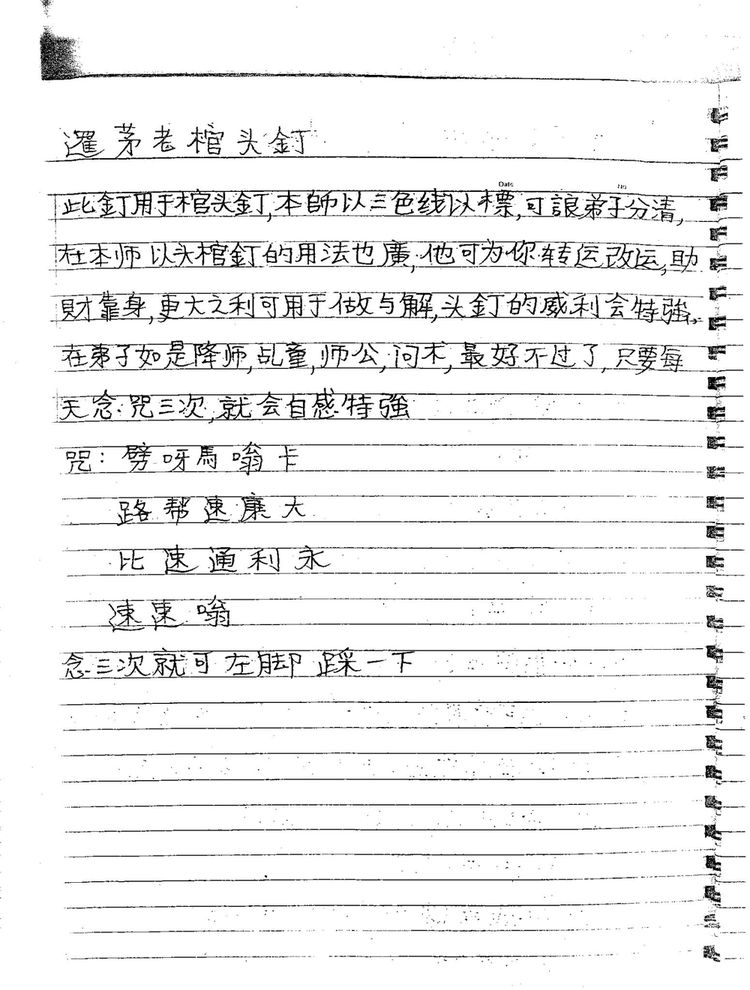 暹茅老棺头釘
Date
此釘用于棺头釘,本師以三色线以標,可誏弟子分清,
在本师以头棺釘的用法也廣,他可为你转运改运,助
財靠身,更大之利可用于做与解,头釘的威利会特強,
在弟子如是降师,乩童,师公,问术,最好不过了,只要每
天念咒三次,就会自感特強
咒:劈呀馬嗡卡
路帮速廉大
比速通利永
速速嗡
念三次就可左脚踩一下